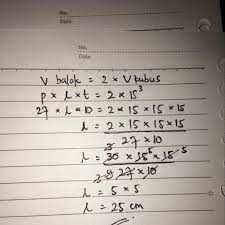 No.
Date
No.
Date
V balok = 2 × V kubus
p × l × t = 2 × 15³
27 × l × 10 = 2 × 15 × 15 × 15
l = 2 × 15 × 15 × 15
27 × 10
l = 30 × 15⁵ × 15⁵
27 × 10
l = 5 × 5
l = 25 cm